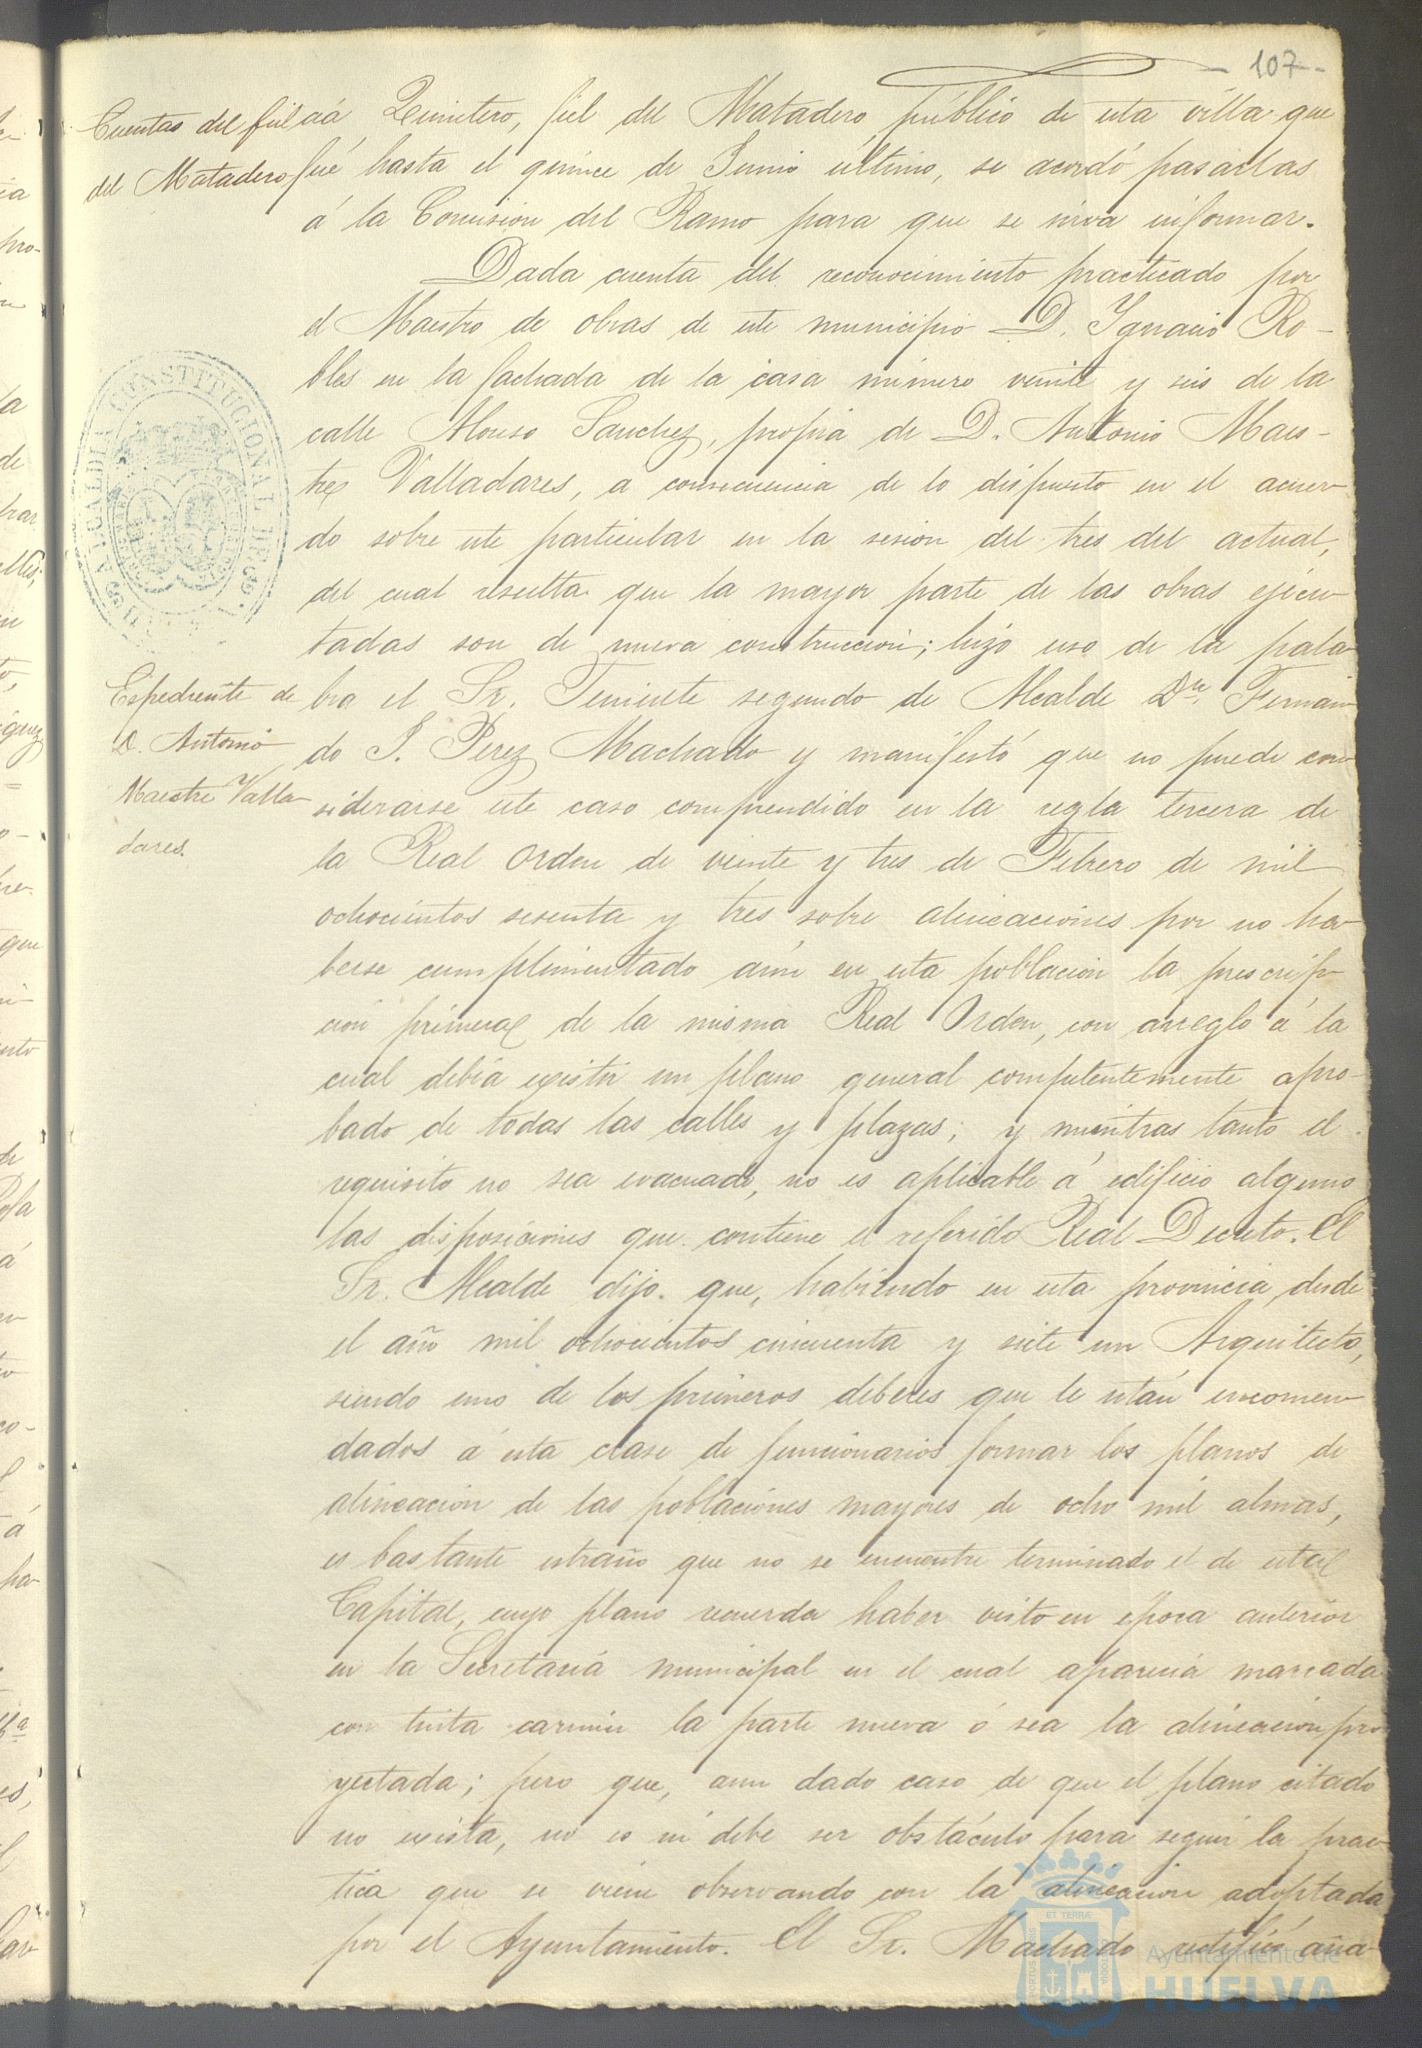 107
Cuentas del fiel
del Matadero
cia Quintero, fiel del Matadero público de esta villa que
fué hasta el quince de Junio último, se acordó pasarlas
á la Comision del Ramo para que se sirva informar.
Dada cuenta del reconocimiento practicado por
el Maestro de obras de este municipio D. Ygnacio Ro-
bles en la fachada de la casa número veinte y seis de la
calle Alonso Sanchez, propia de D. Antonio Maes-
tre Valladares, a consecuencia de lo dispuesto en el acuer
do sobre este particular en la sesion del tres del actual,
del cual resulta que la mayor parte de las obras ejecu
tadas son de nueva construccion; hizo uso de la pala
Espediente de
D. Antonio
Maestre Valla-
dares.
bra el Sr. Teniente segundo de Alcalde Dn. Fernan
do J. Perez Machado y manifestó que no puede con
siderarse este caso comprendido en la regla tercera de
la Real Orden de veinte y tres de Febrero de mil
ochocientos sesenta y tres sobre alineaciones por no ha-
berse cumplimentado aún en esta poblacion la prescrip-
cion primera de la misma Real Orden, con arreglo á la
cual debia existir un plano general competentemente apro-
bado de todas las calles y plazas; y mientras tanto el
requisito no sea evacuado, no es aplicable á edificio alguno
las disposiciones que contiene el referido Real Decreto. El
Sr. Alcalde dijo que, habiendo en esta provincia desde
el año mil ochocientos cincuenta y siete un Arquitecto,
siendo uno de los primeros deberes que le están encomen
dados á esta clase de funcionarios formar los planos de
alineacion de las poblaciones mayores de ocho mil almas,
es bastante estraño que no se encuentre terminado el de esta
Capital, cuyo plano recuerda haber visto en época anterior
en la Secretaria municipal en el cual aparecia marcada
con tinta carmin la parte nueva ó sea la alineacion pro
yectada; pero que, aun dado caso de que el plano citado
no exista, no es ni debe ser obstáculo para seguir la prac-
tica que se viene observando con la alineacion adoptada
por el Ayuntamiento. El Sr. Machado rectificó aña-
ALCALDIA CONSTITUCIONAL DE
Ayuntamiento de
HUELVA